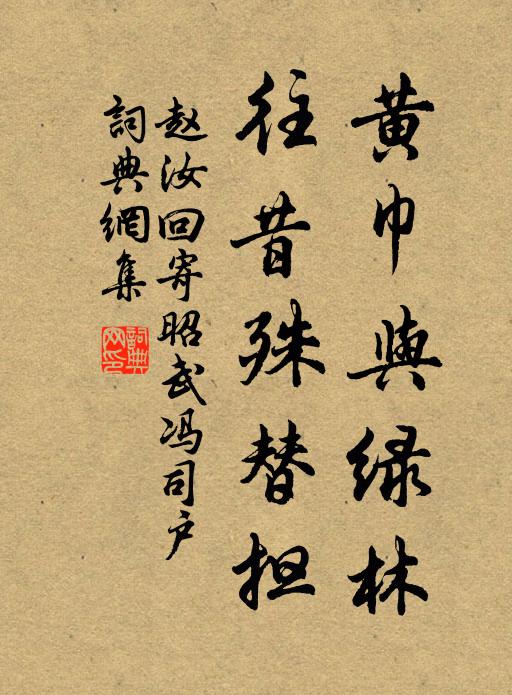 黄巾與绿林
往昔殊替担
赵汝回寄昭武冯司户
詞典網集
詞典网印